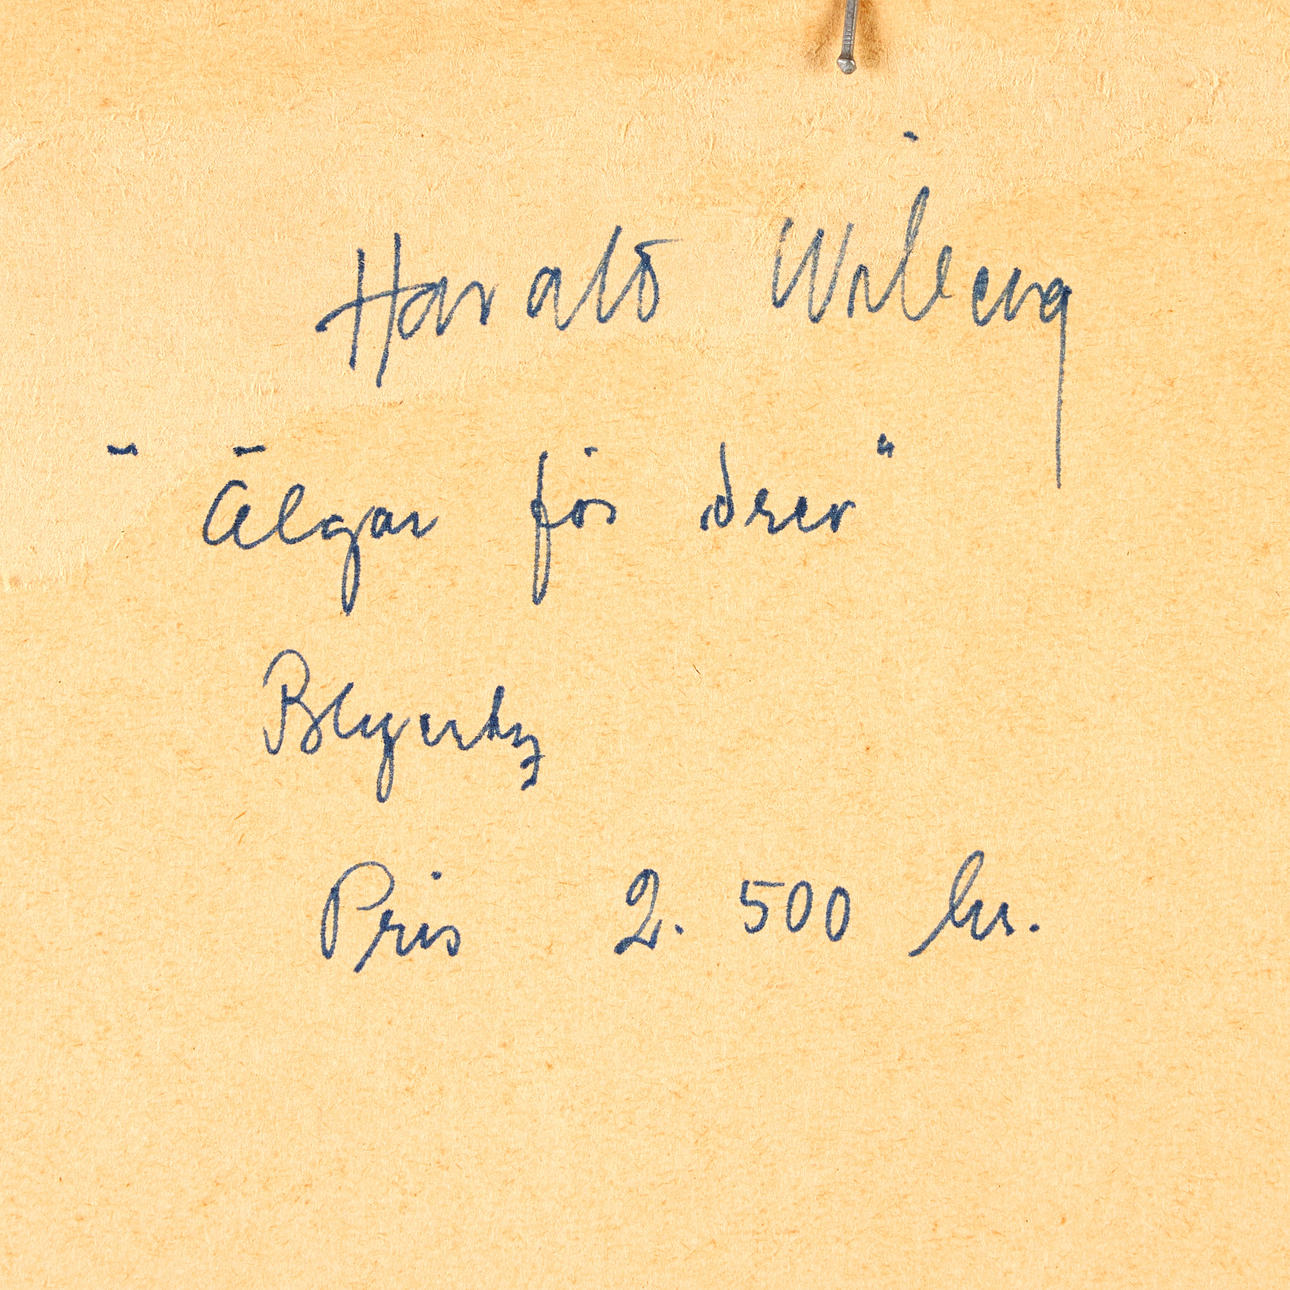 Harald Wiberg
"Älgar för drev"
Blyertz
Pris 2.500 kr.